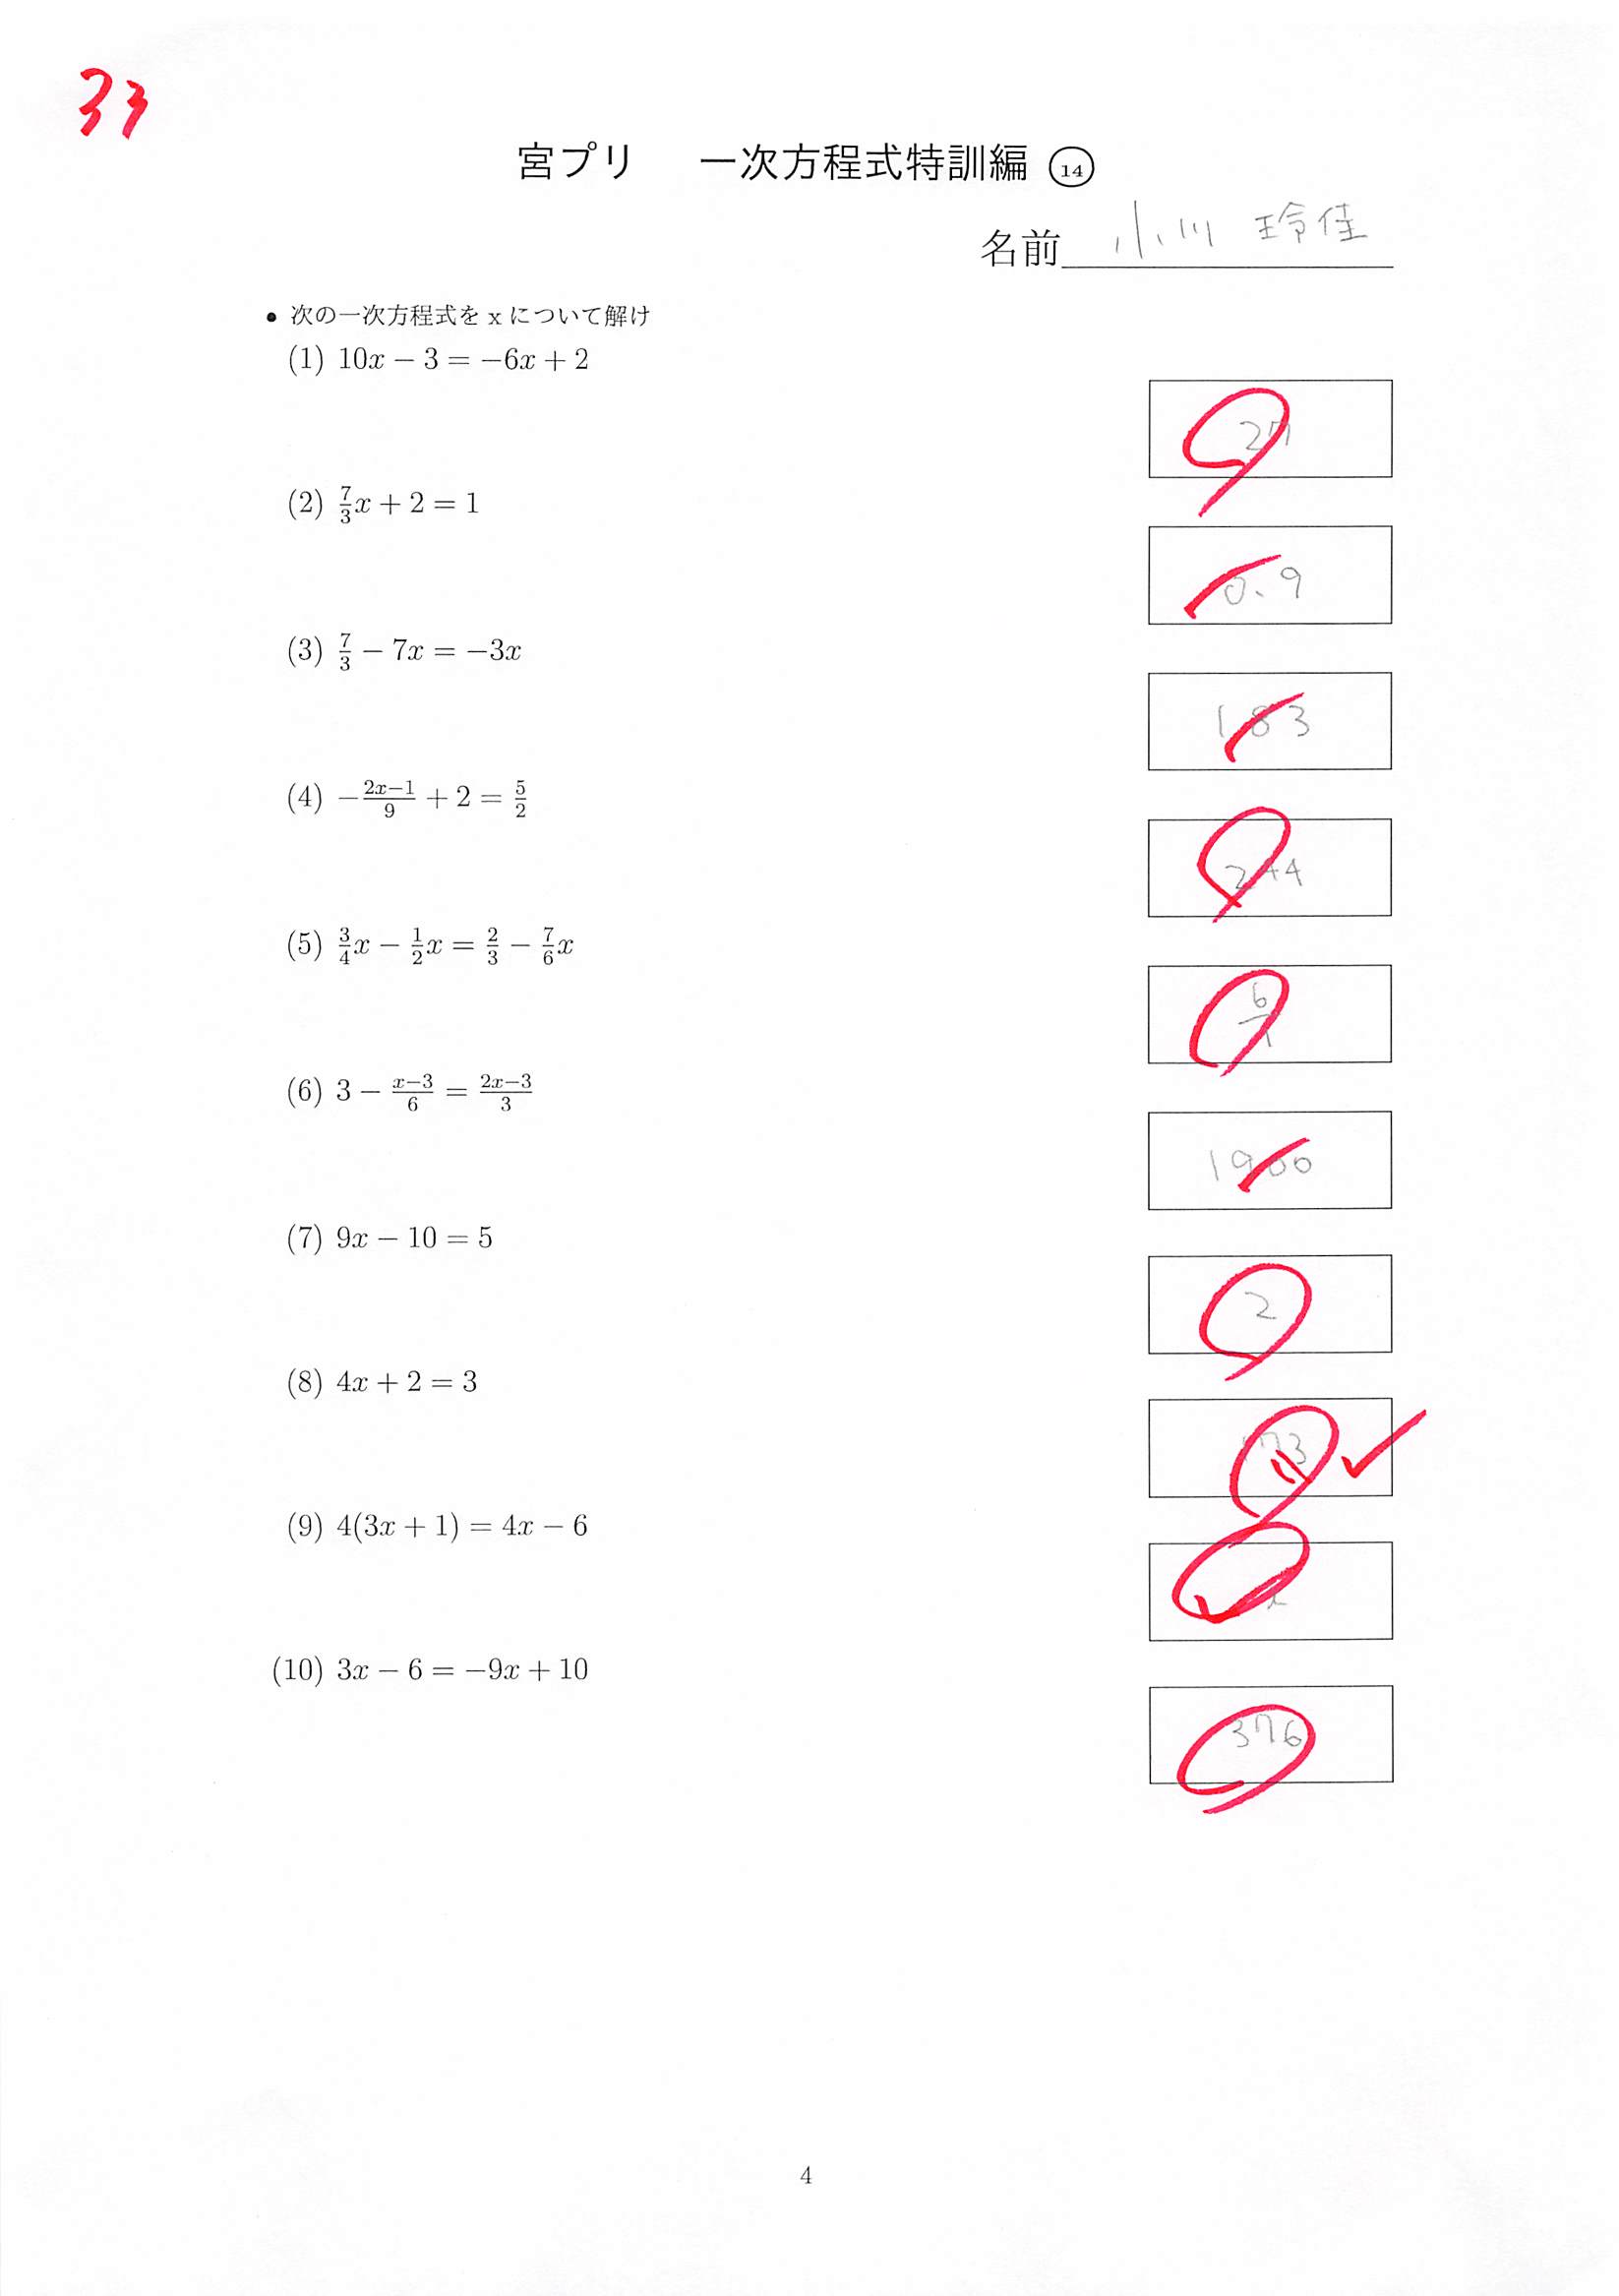 33
宮プリ 一次方程式特訓編 ⑭
名前 小川 玲佳
• 次の一次方程式を x について解け
(1) 10x − 3 = −6x + 2
27
(2) 7/3 x + 2 = 1
0.9
(3) 7/3 − 7x = −3x
183
(4) − (2x−1)/9 + 2 = 5/2
244
(5) 3/4 x − 1/2 x = 2/3 − 7/6 x
6/7
(6) 3 − (x−3)/6 = (2x−3)/3
1900
(7) 9x − 10 = 5
2
(8) 4x + 2 = 3
73
(9) 4(3x + 1) = 4x − 6
(10) 3x − 6 = −9x + 10
376
4